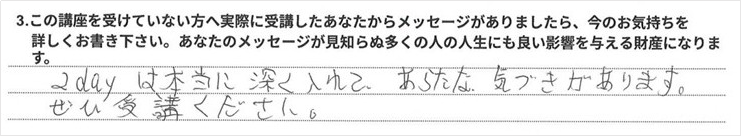 3.この講座を受けていない方へ実際に受講したあなたからメッセージがありましたら、今のお気持ちを
詳しくお書き下さい。あなたのメッセージが見知らぬ多くの人の人生にも良い影響を与える財産になりま
す。
2dayは本当に深く入れて、あらたな気づきがあります。
ぜひ受講ください。